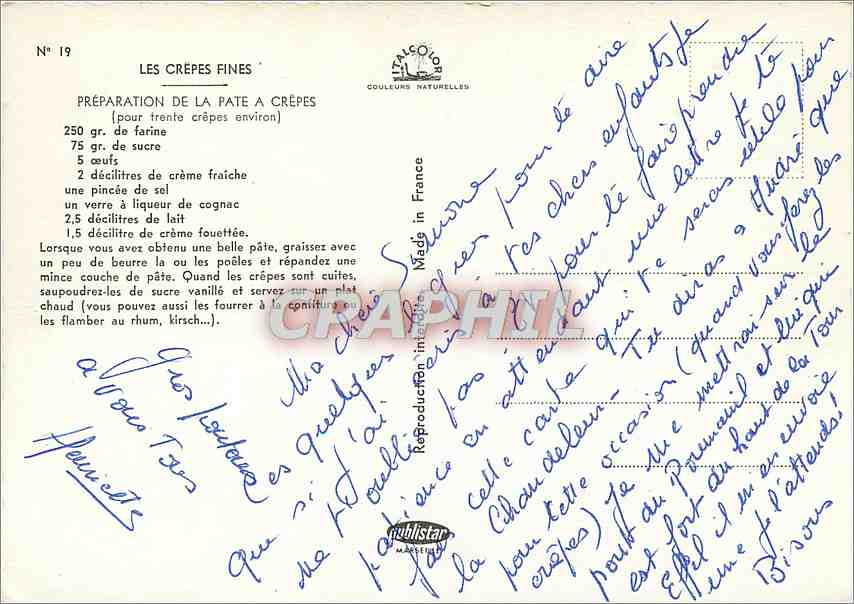 N° 19
LES CRËPES FINES
PRÉPARATION DE LA PATE A CRËPES
(pour trente crêpes environ)
250 gr. de farine
75 gr. de sucre
5 œufs
2 décilitres de crème fraîche
une pincée de sel
un verre à liqueur de cognac
2,5 décilitres de lait
1,5 décilitre de crème fouettée.
Lorsque vous avez obtenu une belle pâte, graissez avec
un peu de beurre la ou les poêles et répandez une
mince couche de pâte. Quand les crêpes sont cuites,
saupoudrez-les de sucre vanillé et servez sur un plat
chaud (vous pouvez aussi les fourrer à la confiture ou
les flamber au rhum, kirsch...).
ITALCOLOR
COULEURS NATURELLES
Reproduction interdite. Made in France
publistar
MARSEILLE
CRAPHIL
Ma chère Simone
Ces quelques lignes pour te dire
que si j'ai écris à tes chers enfants je
ne t'oublie pas et pour te faire prendre
patience en attendant une lettre je te
fais cette carte qui te sera utile pour
la Chandeleur - Tu diras à André que
pour cette occasion (quand vous ferez les
crêpes) je me mettrai sur le
pont du et lui qui
est fort du haut de la Tour
Eiffel il m'en envoie
une je l'attends!
Bisous
Gros
a Vous Tous
Henriette